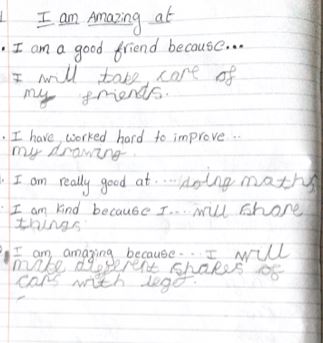 I am Amazing at
. I am a good friend because...
I will take care of
my friends.
. I have worked hard to improve ..
my drawing
. I am really good at ... doing maths
. I am kind because I ... will share
things
I am amazing because ... I will
make different shapes of
cars with lego.